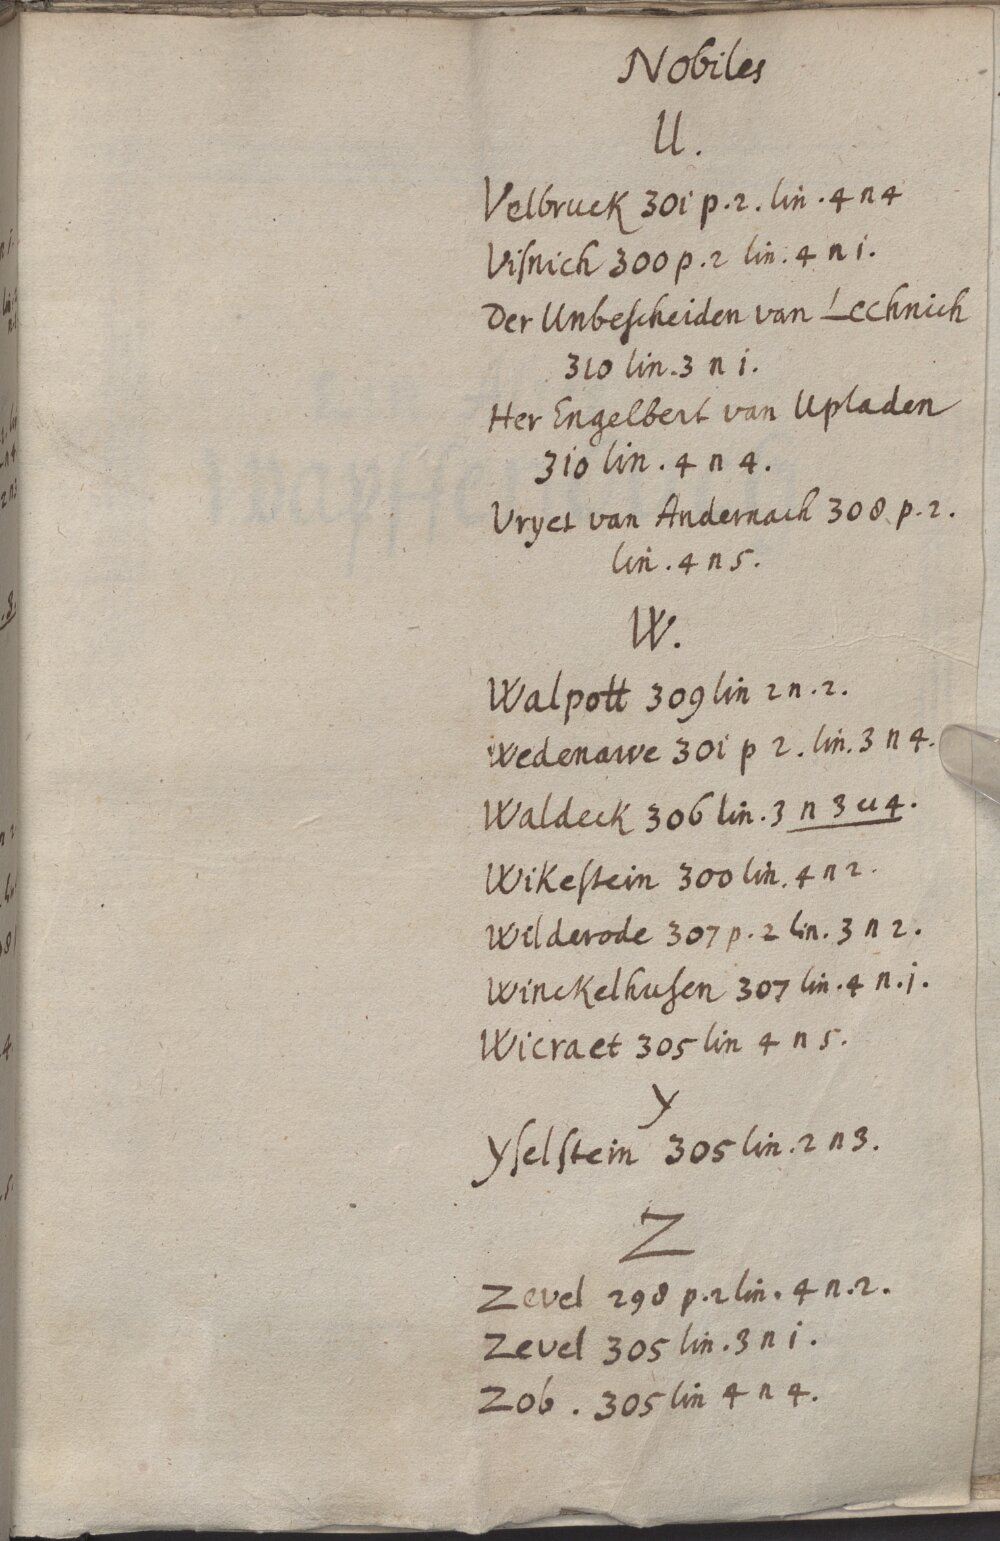 Nobiles
U.
Velbruck 301 p. 2. lin. 4 n 4
Viſnich 300 p. 2 lin. 4 n i.
Der Unbeſcheiden van Lechnich
310 lin. 3 n i.
Her Engelbert van Upladen
310 lin. 4 n 4.
Vryet van Andernach 308 p. 2.
lin. 4 n 5.
W.
Walpott 309 lin 2 n. 2.
Wedenawe 301 p 2. lin. 3 n 4.
Waldeck 306 lin. 3 n 3 u 4.
Wikeſtein 300 lin. 4 n 2.
Wilderode 307 p. 2 lin. 3 n 2.
Winckelhuſen 307 lin. 4 n. j.
Wicraet 305 lin 4 n 5.
Y
Yſelſtein 305 lin. 2 n 3.
Z
Zevel 298 p. 2 lin. 4 n. 2.
Zevel 305 lin. 3 n i.
Zob. 305 lin 4 n 4.